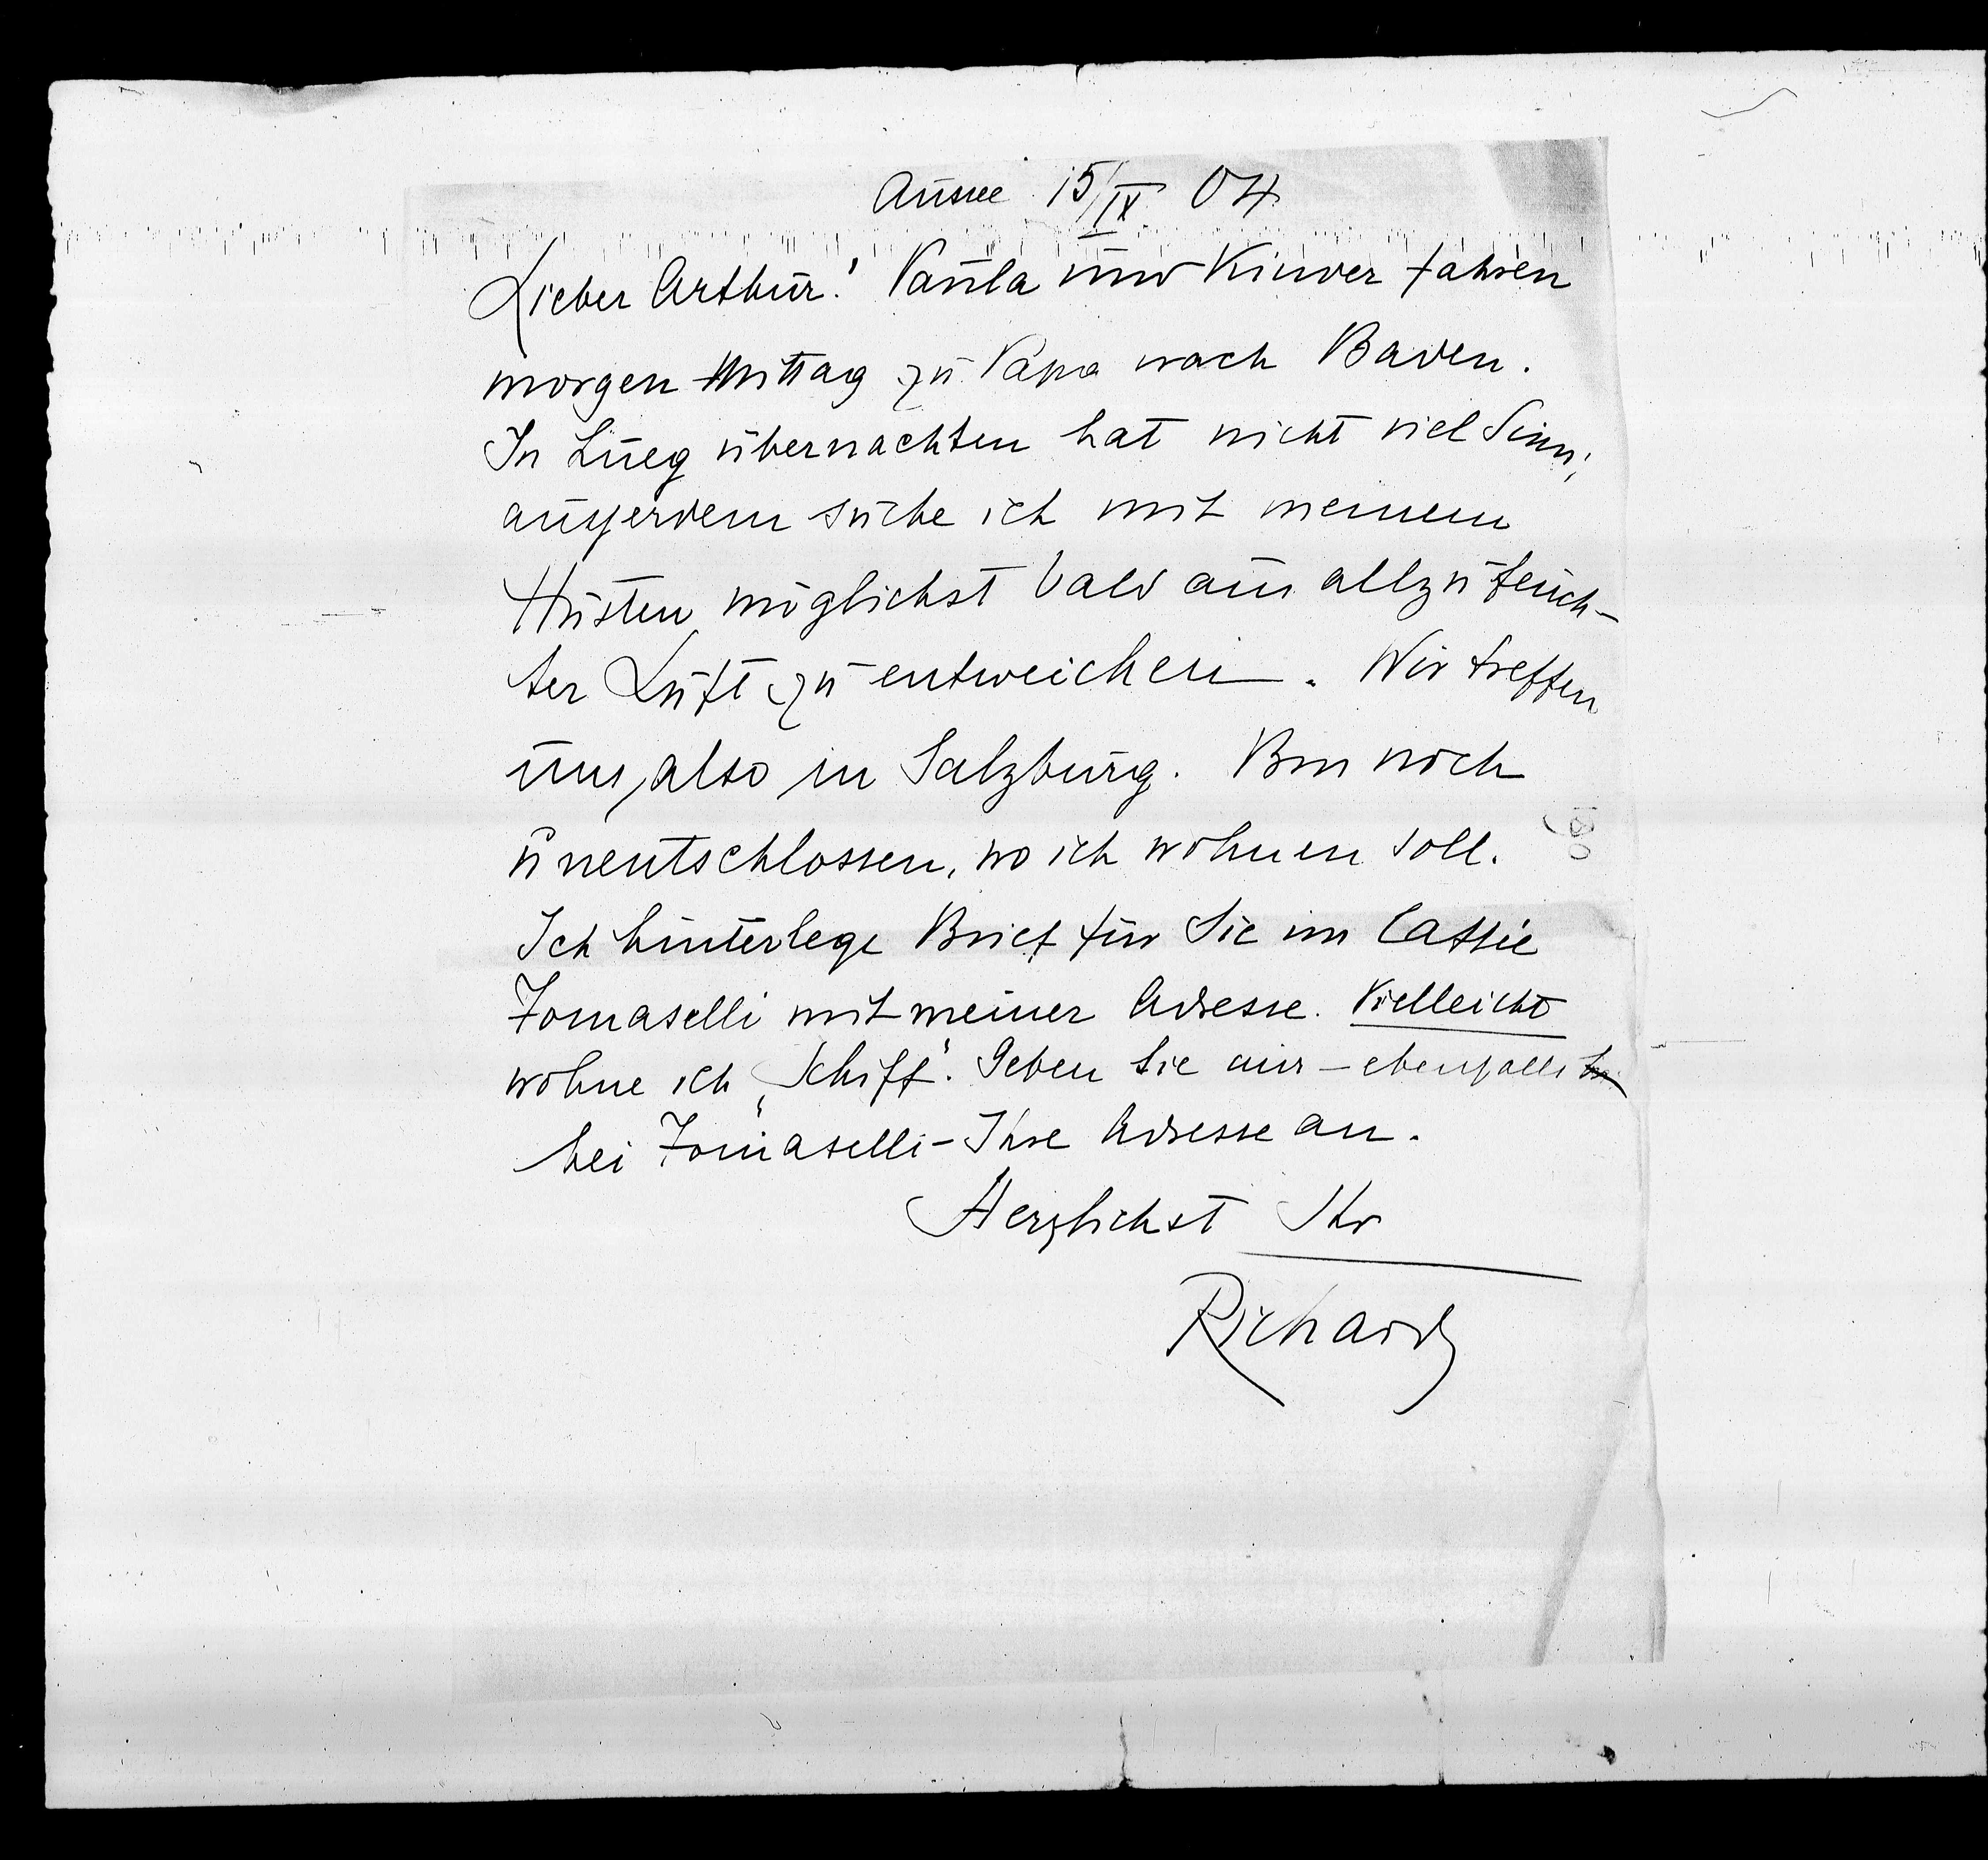 Aussee 15/IX 04
Lieber Arthur! Paula und Kinder fahren
morgen Mittag zu Papa nach Baden.
In Lueg übernachten hat nicht viel Sinn;
außerdem suche ich mit meinem
Husten möglichst bald aus allzu feuch-
ter Luft zu entweichen. Wir treffen
uns also in Salzburg. Bin noch
unentschlossen, wo ich wohnen soll.
Ich hinterlege Brief für Sie im Caffée
Tomaselli mit meiner Adresse. Vielleicht
wohne ich „Schiff“. Geben Sie mir – ebenfalls
bei Tomaselli – Ihre Adresse an.
Herzlichst Ihr
Richard